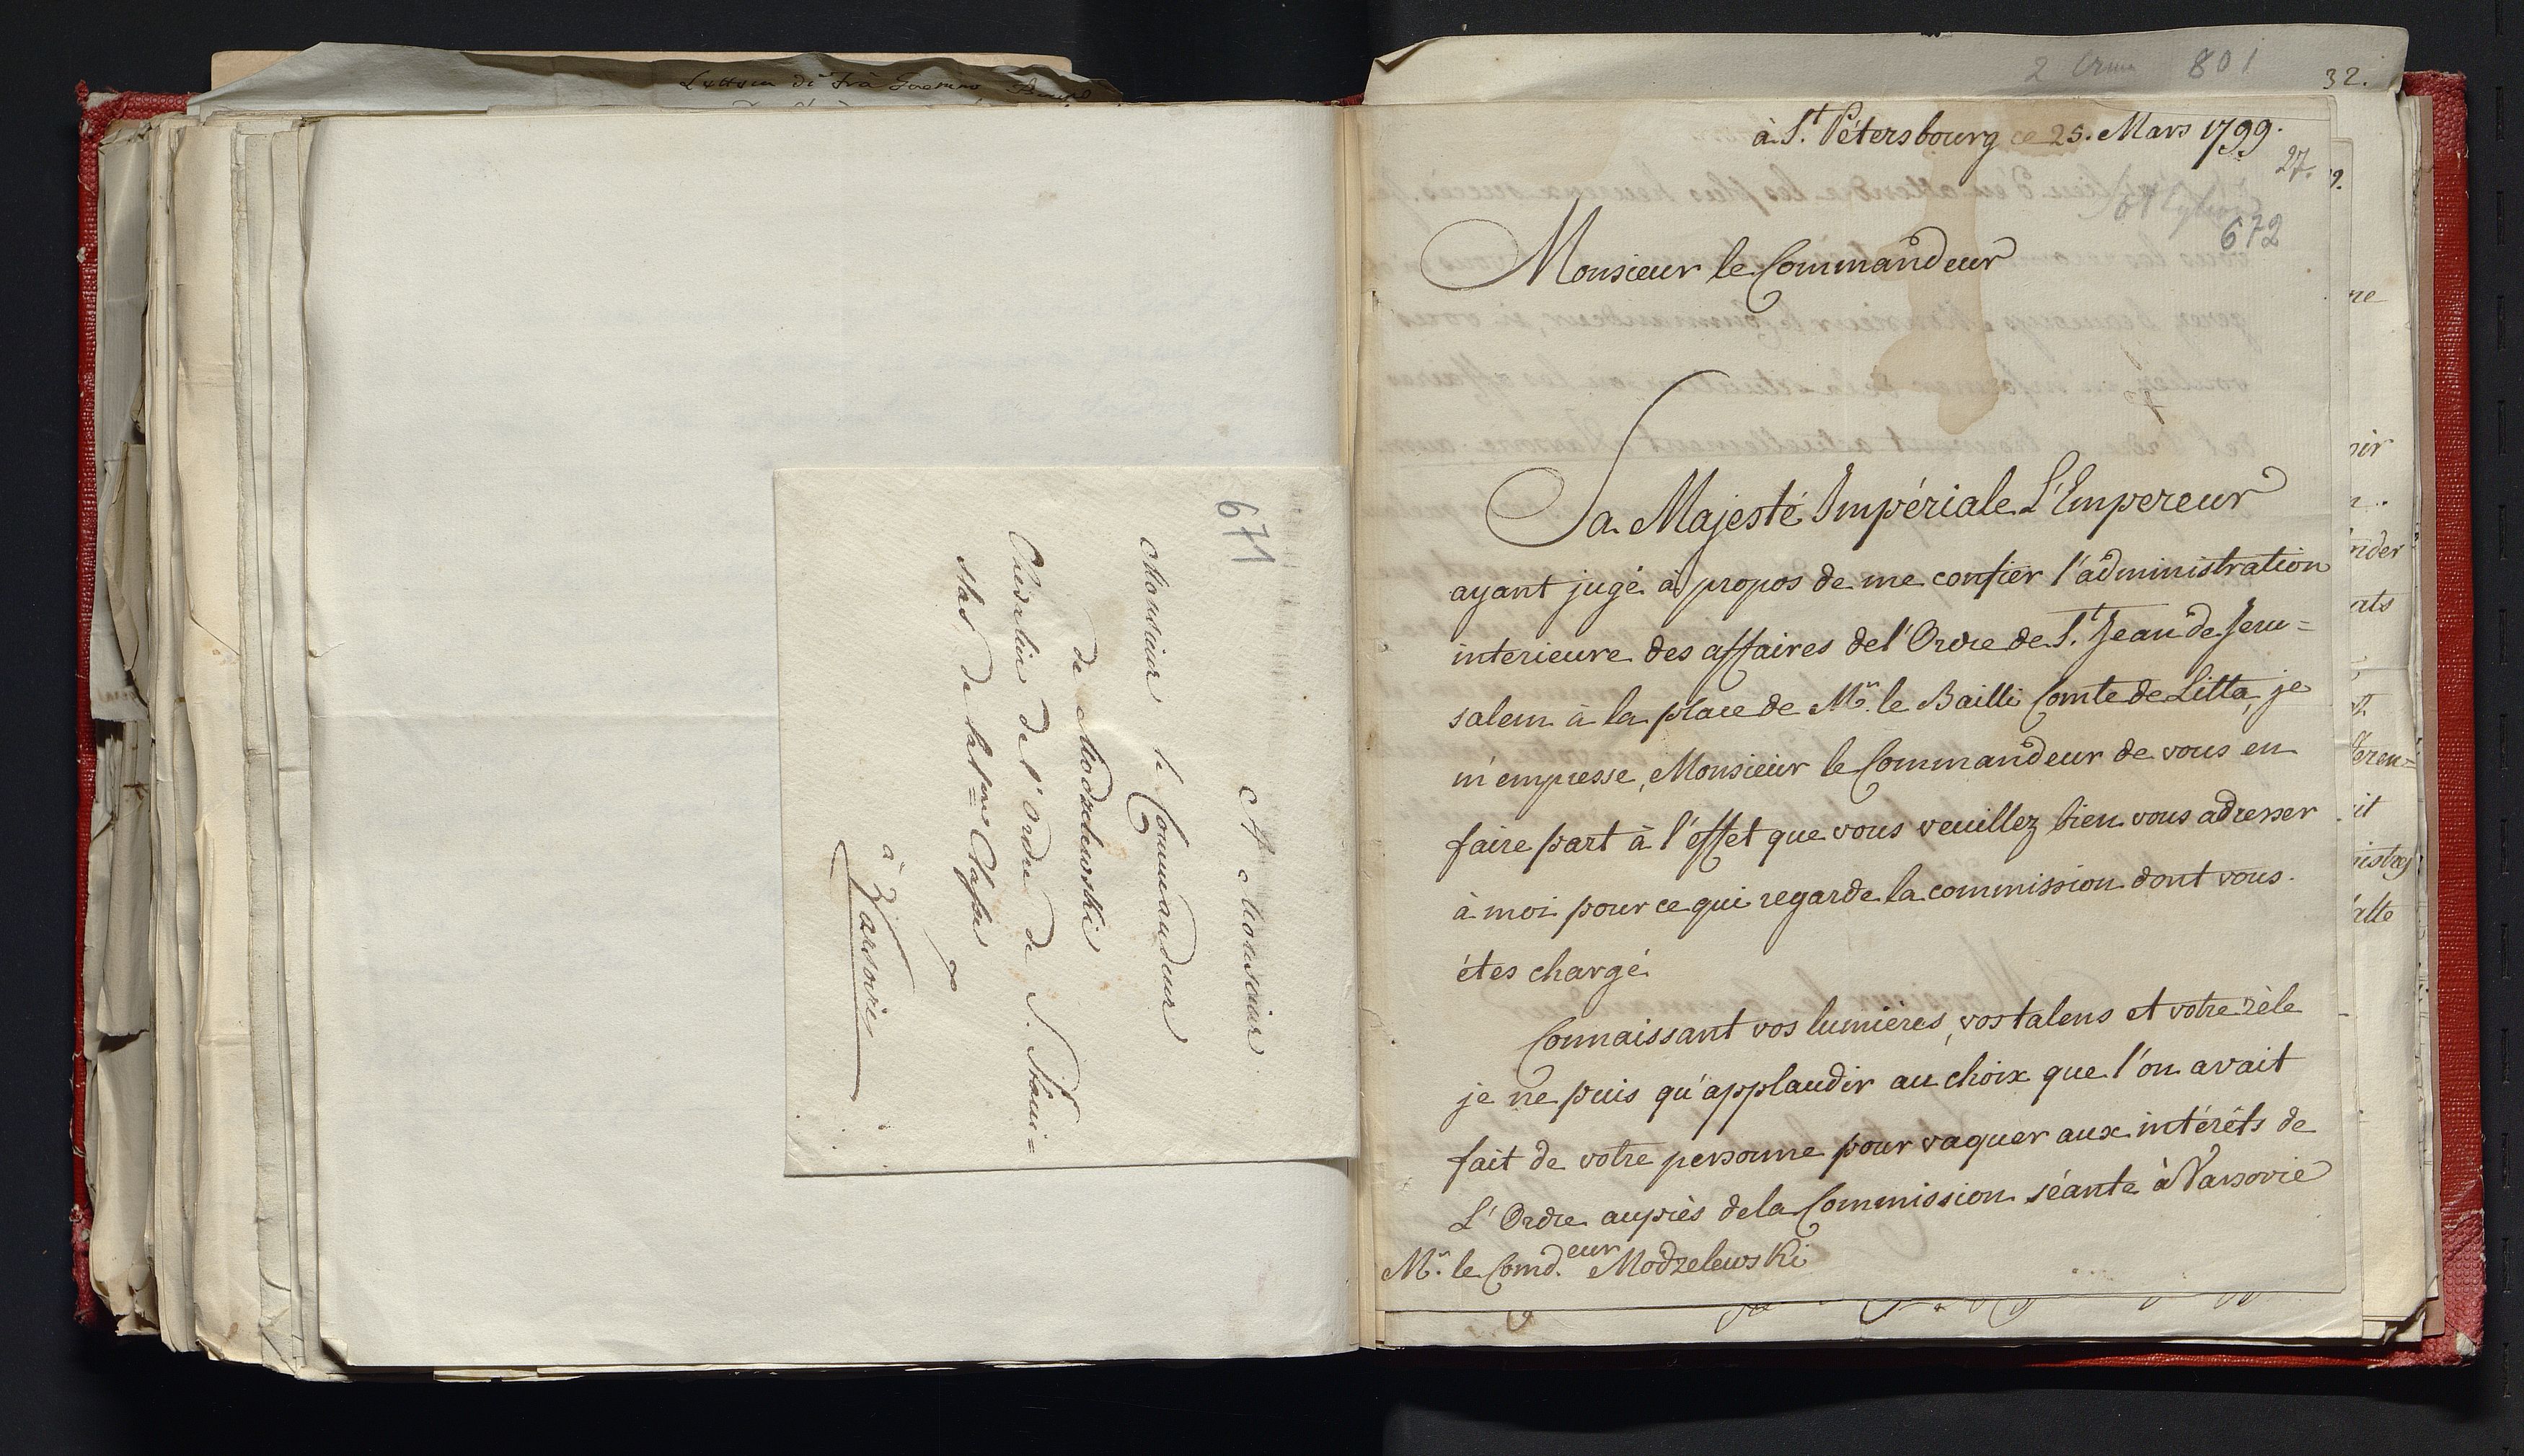 Lettera di Frà
671
A Monsieur
Monsieur le Commandeur
de Modzelewski
Chevalier de l'Ordre de S. Stani=
slas de la 1ere Classe
à Varsovie
2 801
32.
à S.t Pétersbourg ce 25. Mars 1799.
27.
672
Monsieur le Commandeur
Sa Majesté Impériale L'Empereur
ayant jugé à propos de me confier l'administration
interieure des affaires de l'Ordre de S.t Jean de Jeru=
salem à la place de Mr. le Bailli Comte de Litta, je
m'empresse, Monsieur le Commandeur de vous en
faire part à l'effet que vous veuillez bien vous adresser
à moi pour ce qui regarde la commission dont vous
étes chargé.
Connaissant vos lumières, vos talens et votre zèle
je ne puis qu'applaudir au choix que l'on avait
fait de votre personne pour vaquer aux intérêts de
L'Ordre auprès de la Commission séante à Varsovie
Mr. le Comd.eur Modzelewski